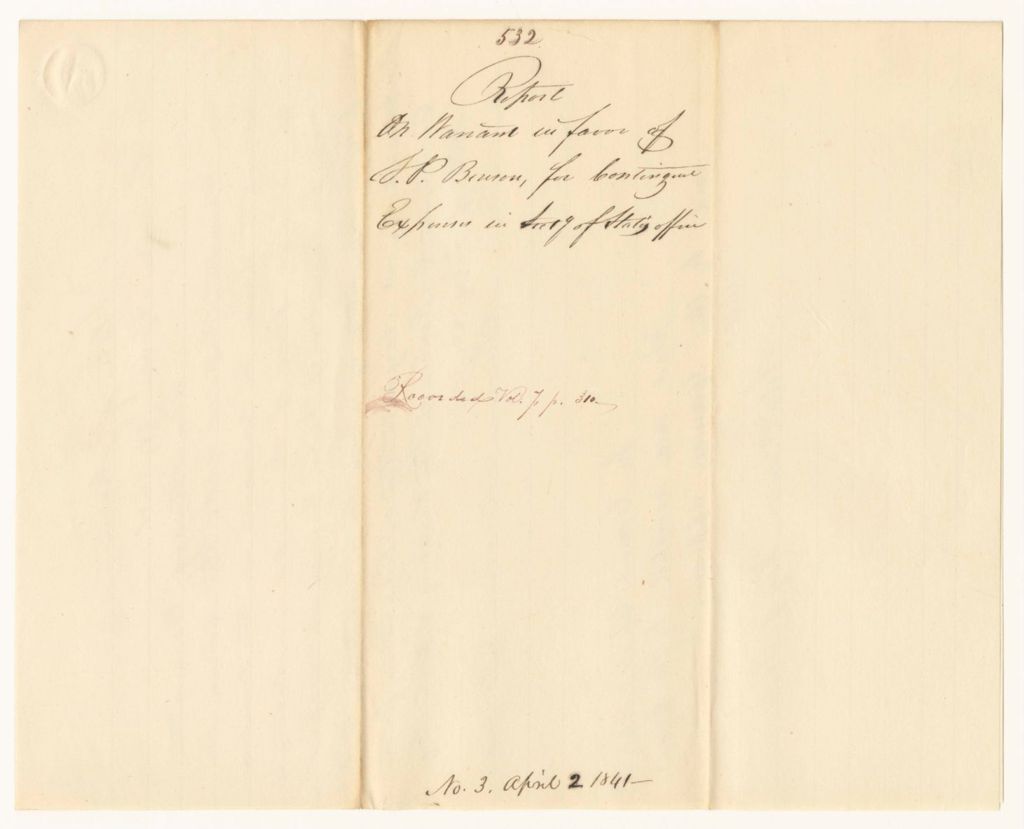 532
Report
On Warrant in favor of
S. P. Benson, for Contingent
Expenses in Secy of State's office
Recorded Vol. 7. p. 310.
No. 3. April 2 1841-